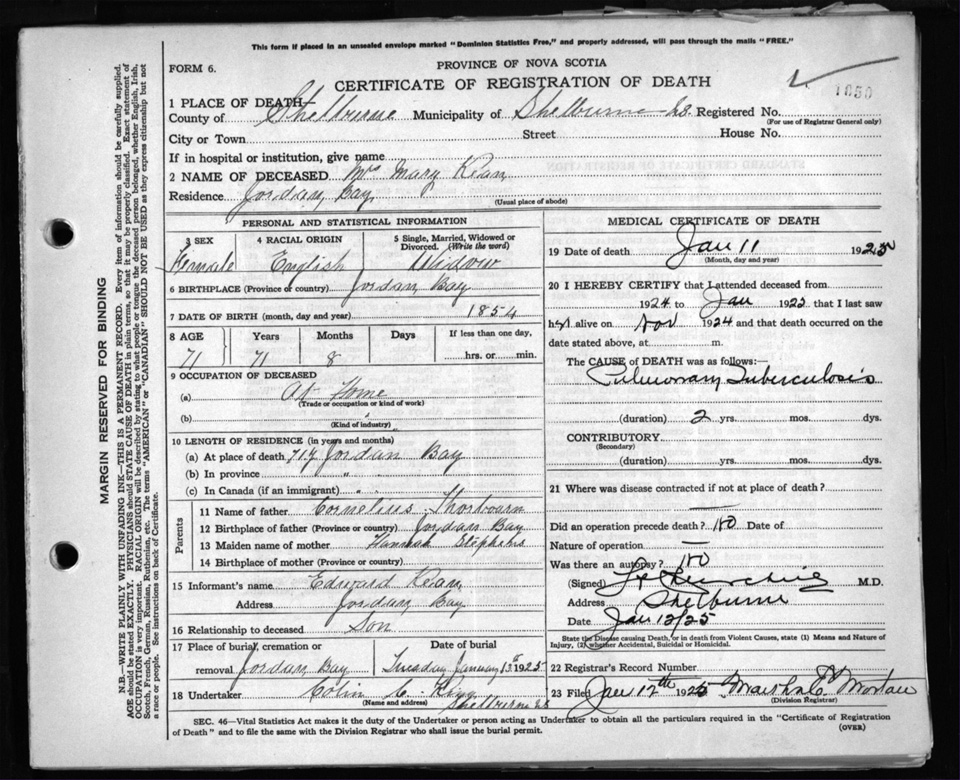 This form if placed in an unsealed envelope marked "Dominion Statistics Free," and properly addressed, will pass through the mails "FREE."
FORM 6.
PROVINCE OF NOVA SCOTIA
CERTIFICATE OF REGISTRATION OF DEATH
1850
1 PLACE OF DEATH—
County of Shelburne Municipality of Shelburne Registered No.
(For use of Registrar General only)
City or Town Street House No.
If in hospital or institution, give name
2 NAME OF DECEASED Mrs Mary Kean
Residence Jordan Bay
(Usual place of abode)
PERSONAL AND STATISTICAL INFORMATION
3 SEX 4 RACIAL ORIGIN 5 Single, Married, Widowed or Divorced. (Write the word)
Female English Widow
6 BIRTHPLACE (Province or country) Jordan Bay
7 DATE OF BIRTH (month, day and year) 1854
8 AGE Years Months Days If less than one day,
71 71 8 hrs. or min.
9 OCCUPATION OF DECEASED
(a) At Home
(Trade or occupation or kind of work)
(b) "
(Kind of industry)
10 LENGTH OF RESIDENCE (in years and months)
(a) At place of death 71 Jordan Bay
(b) In province "
(c) In Canada (if an immigrant) " "
Parents
11 Name of father Cornelius Thorbourn
12 Birthplace of father (Province or country) Jordan Bay
13 Maiden name of mother Hannah Stephens
14 Birthplace of mother (Province or country)
15 Informant's name Edward Kean
Address Jordan Bay
16 Relationship to deceased Son
17 Place of burial, cremation or removal Jordan Bay Date of burial Tuesday January 13 1925
18 Undertaker Colin C. King
(Name and address) Shelburne
MEDICAL CERTIFICATE OF DEATH
19 Date of death Jan 11 1925
(Month, day and year)
20 I HEREBY CERTIFY that I attended deceased from
1924 to Jan 1925 that I last saw
alive on Nov 1924 and that death occurred on the
date stated above, at m.
The CAUSE of DEATH was as follows:—
Pulmonary Tuberculosis
(duration) 2 yrs. mos. dys.
CONTRIBUTORY
(Secondary)
(duration) yrs. mos. dys.
21 Where was disease contracted if not at place of death?
Did an operation precede death? no Date of
Nature of operation —
Was there an autopsy? no
(Signed) M.D.
Address Shelburne
Date Jan 12/25
State the Disease causing Death, or in death from Violent Causes, state (1) Means and Nature of Injury, (2) whether Accidental, Suicidal or Homicidal.
22 Registrar's Record Number
23 Filed Jan 12th 1925 Marsha C
(Division Registrar)
SEC. 46—Vital Statistics Act makes it the duty of the Undertaker or person acting as Undertaker to obtain all the particulars required in the "Certificate of Registration
of Death" and to file the same with the Division Registrar who shall issue the burial permit.
(OVER)
MARGIN RESERVED FOR BINDING
N.B.—WRITE PLAINLY WITH UNFADING INK—THIS IS A PERMANENT RECORD. Every item of information should be carefully supplied.
AGE should be stated EXACTLY. PHYSICIANS should STATE CAUSE OF DEATH in plain terms, so that it may be properly classified. Exact statement of
OCCUPATION is very important. RACIAL ORIGIN will be described by stating to what people or tongue the deceased person belonged, whether English, Irish,
Scotch, French, German, Russian, Ruthenian, etc. The terms "AMERICAN" or "CANADIAN" SHOULD NOT BE USED as they express citizenship but not
a race or people. See instructions on back of Certificate.